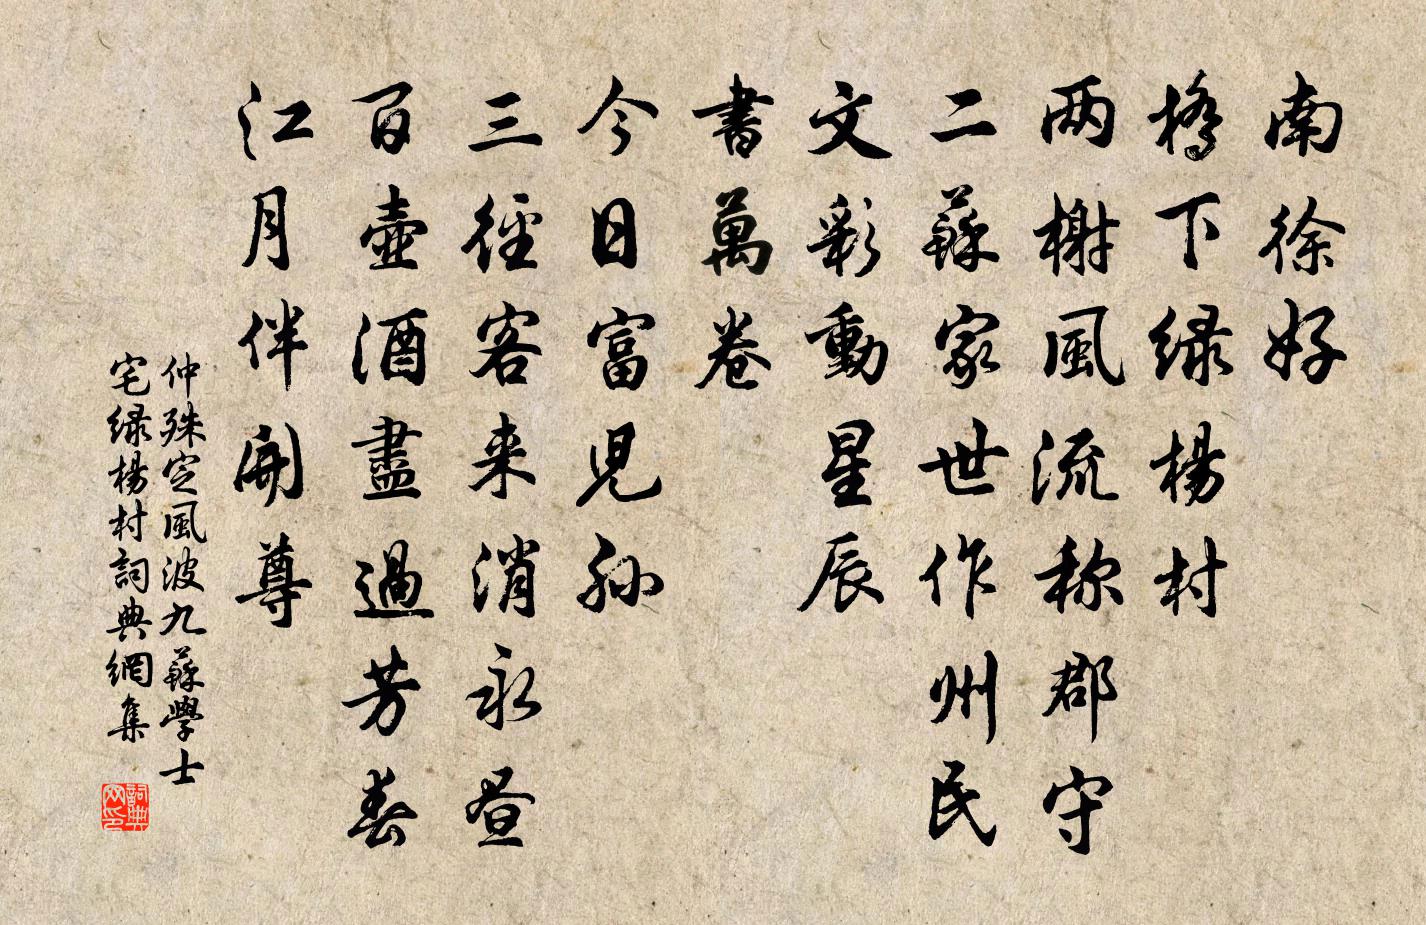 南徐好
橋下緑楊村
两榭風流称郡守
二蘇家世作州民
文彩動星辰
書萬卷
今日富兒孫
三徑客来消永昼
百壺酒盡過芳春
江月伴開尊
仲殊定風波九蘇學士
宅緑楊村詞典網集
詞典网印